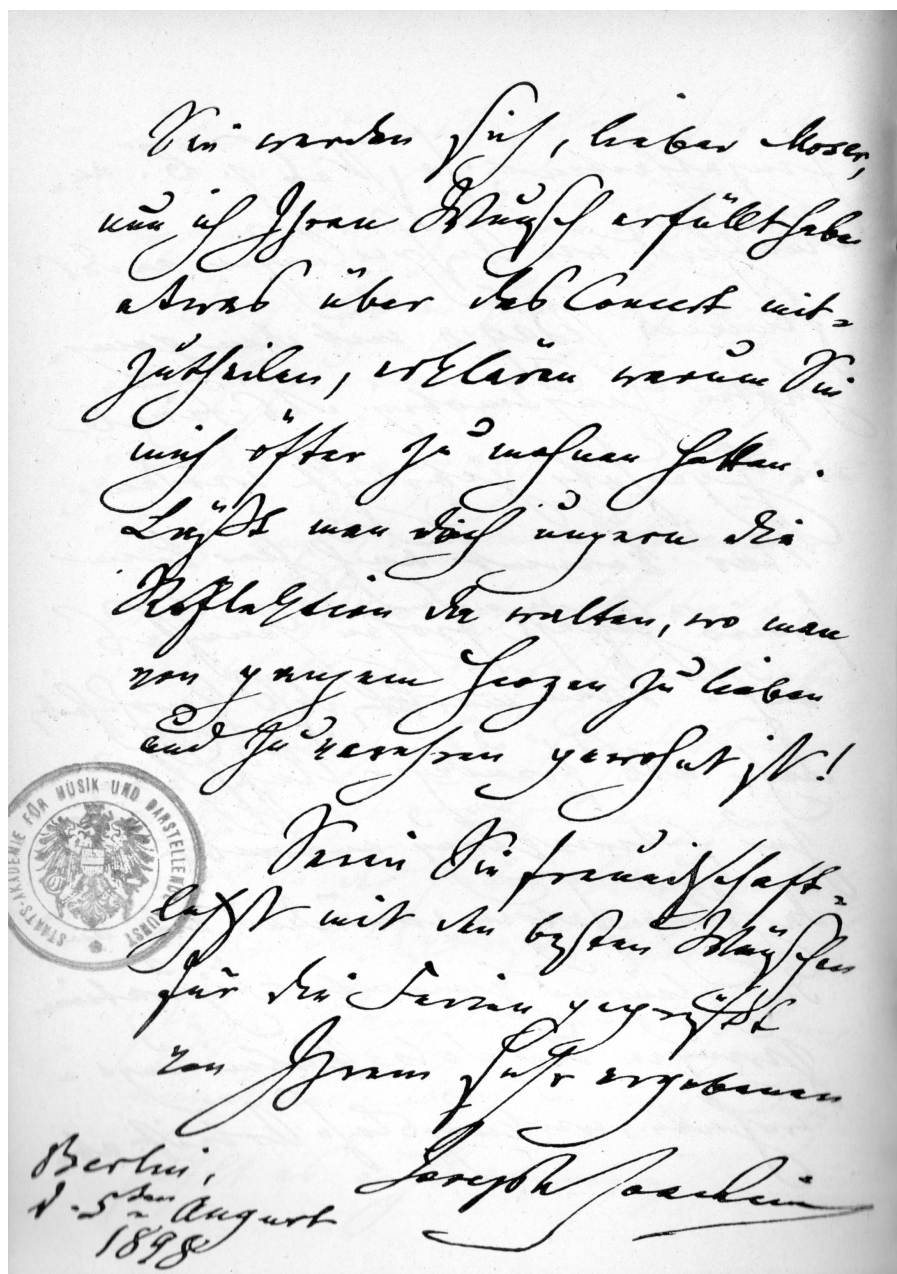 Sie werden sich, lieber Moser,
nun ich Ihren Wunsch erfüllt habe
etwas über das Concert mit=
zutheilen, erklären warum Sie
mich öfter zu mahnen hatten.
Läßt man doch ungern die
Reflektion da walten, wo man
von ganzem Herzen zu lieben
und zu verehren gewohnt ist!
Seien Sie freundschaft=
lichst mit den besten Wünschen
für die Ferien gegrüßt
von Ihrem sehr ergebenen
Joseph Joachim
Berlin,
d. 5ten August
1898
STAATS-AKADEMIE FÜR MUSIK UND DARSTELLENDE KUNST